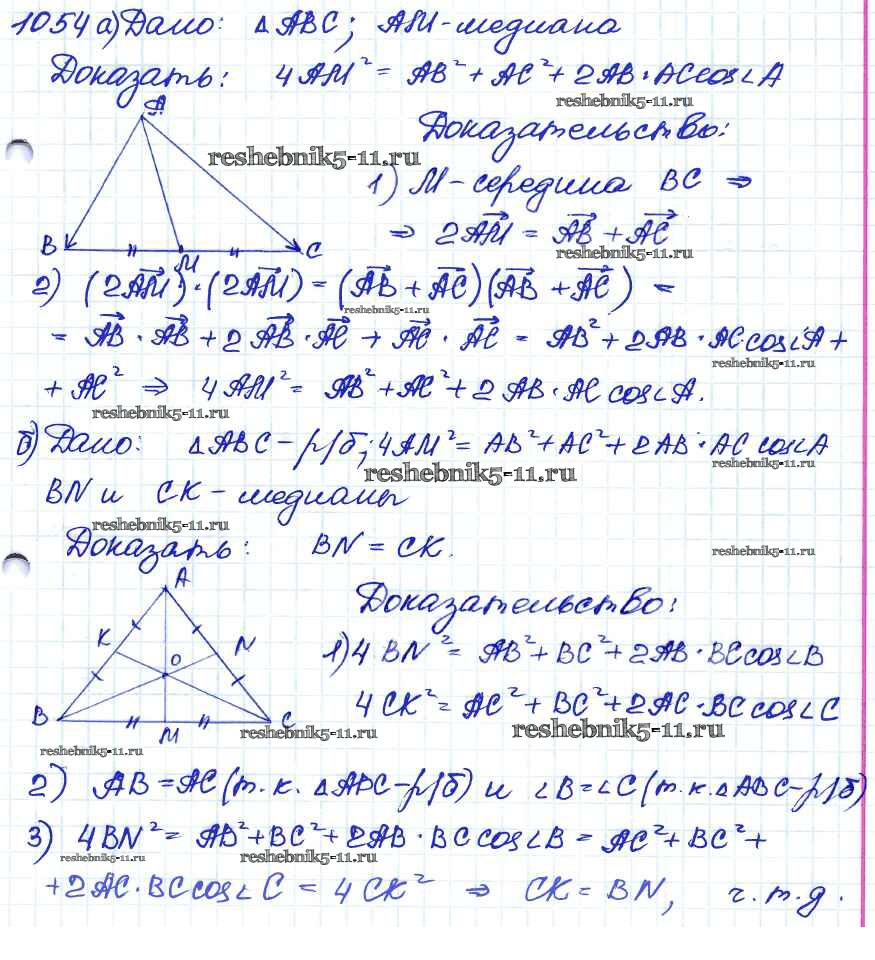 1054 а) Дано: △ABC; AM-медиана
Доказать: 4AM² = AB² + AC² + 2AB·AC cos∠A
reshebnik5-11.ru
A
Доказательство:
reshebnik5-11.ru
1) M-середина BC ⇒
B M C
⇒ 2AM→ = AB→ + AC→
reshebnik5-11.ru
2) (2AM→)·(2AM→) = (AB→ + AC→)(AB→ + AC→) =
reshebnik5-11.ru
= AB→·AB→ + 2AB→·AC→ + AC→·AC→ = AB² + 2AB·AC cos∠A +
reshebnik5-11.ru
+ AC² ⇒ 4AM² = AB² + AC² + 2AB·AC cos∠A.
reshebnik5-11.ru
б) Дано: △ABC - р/б; 4AM² = AB² + AC² + 2AB·AC cos∠A
reshebnik5-11.ru
reshebnik5-11.ru
BN и CK - медианы
reshebnik5-11.ru
Доказать: BN = CK.
reshebnik5-11.ru
A
Доказательство:
K N
O
1) 4BN² = AB² + BC² + 2AB·BC cos∠B
4CK² = AC² + BC² + 2AC·BC cos∠C
B M C
reshebnik5-11.ru
reshebnik5-11.ru
reshebnik5-11.ru
2) AB = AC (т.к. △ABC-р/б) и ∠B = ∠C (т.к. △ABC-р/б)
3) 4BN² = AB² + BC² + 2AB·BC cos∠B = AC² + BC² +
reshebnik5-11.ru
reshebnik5-11.ru
reshebnik5-11.ru
+ 2AC·BC cos∠C = 4CK² ⇒ CK = BN, ч.т.д.